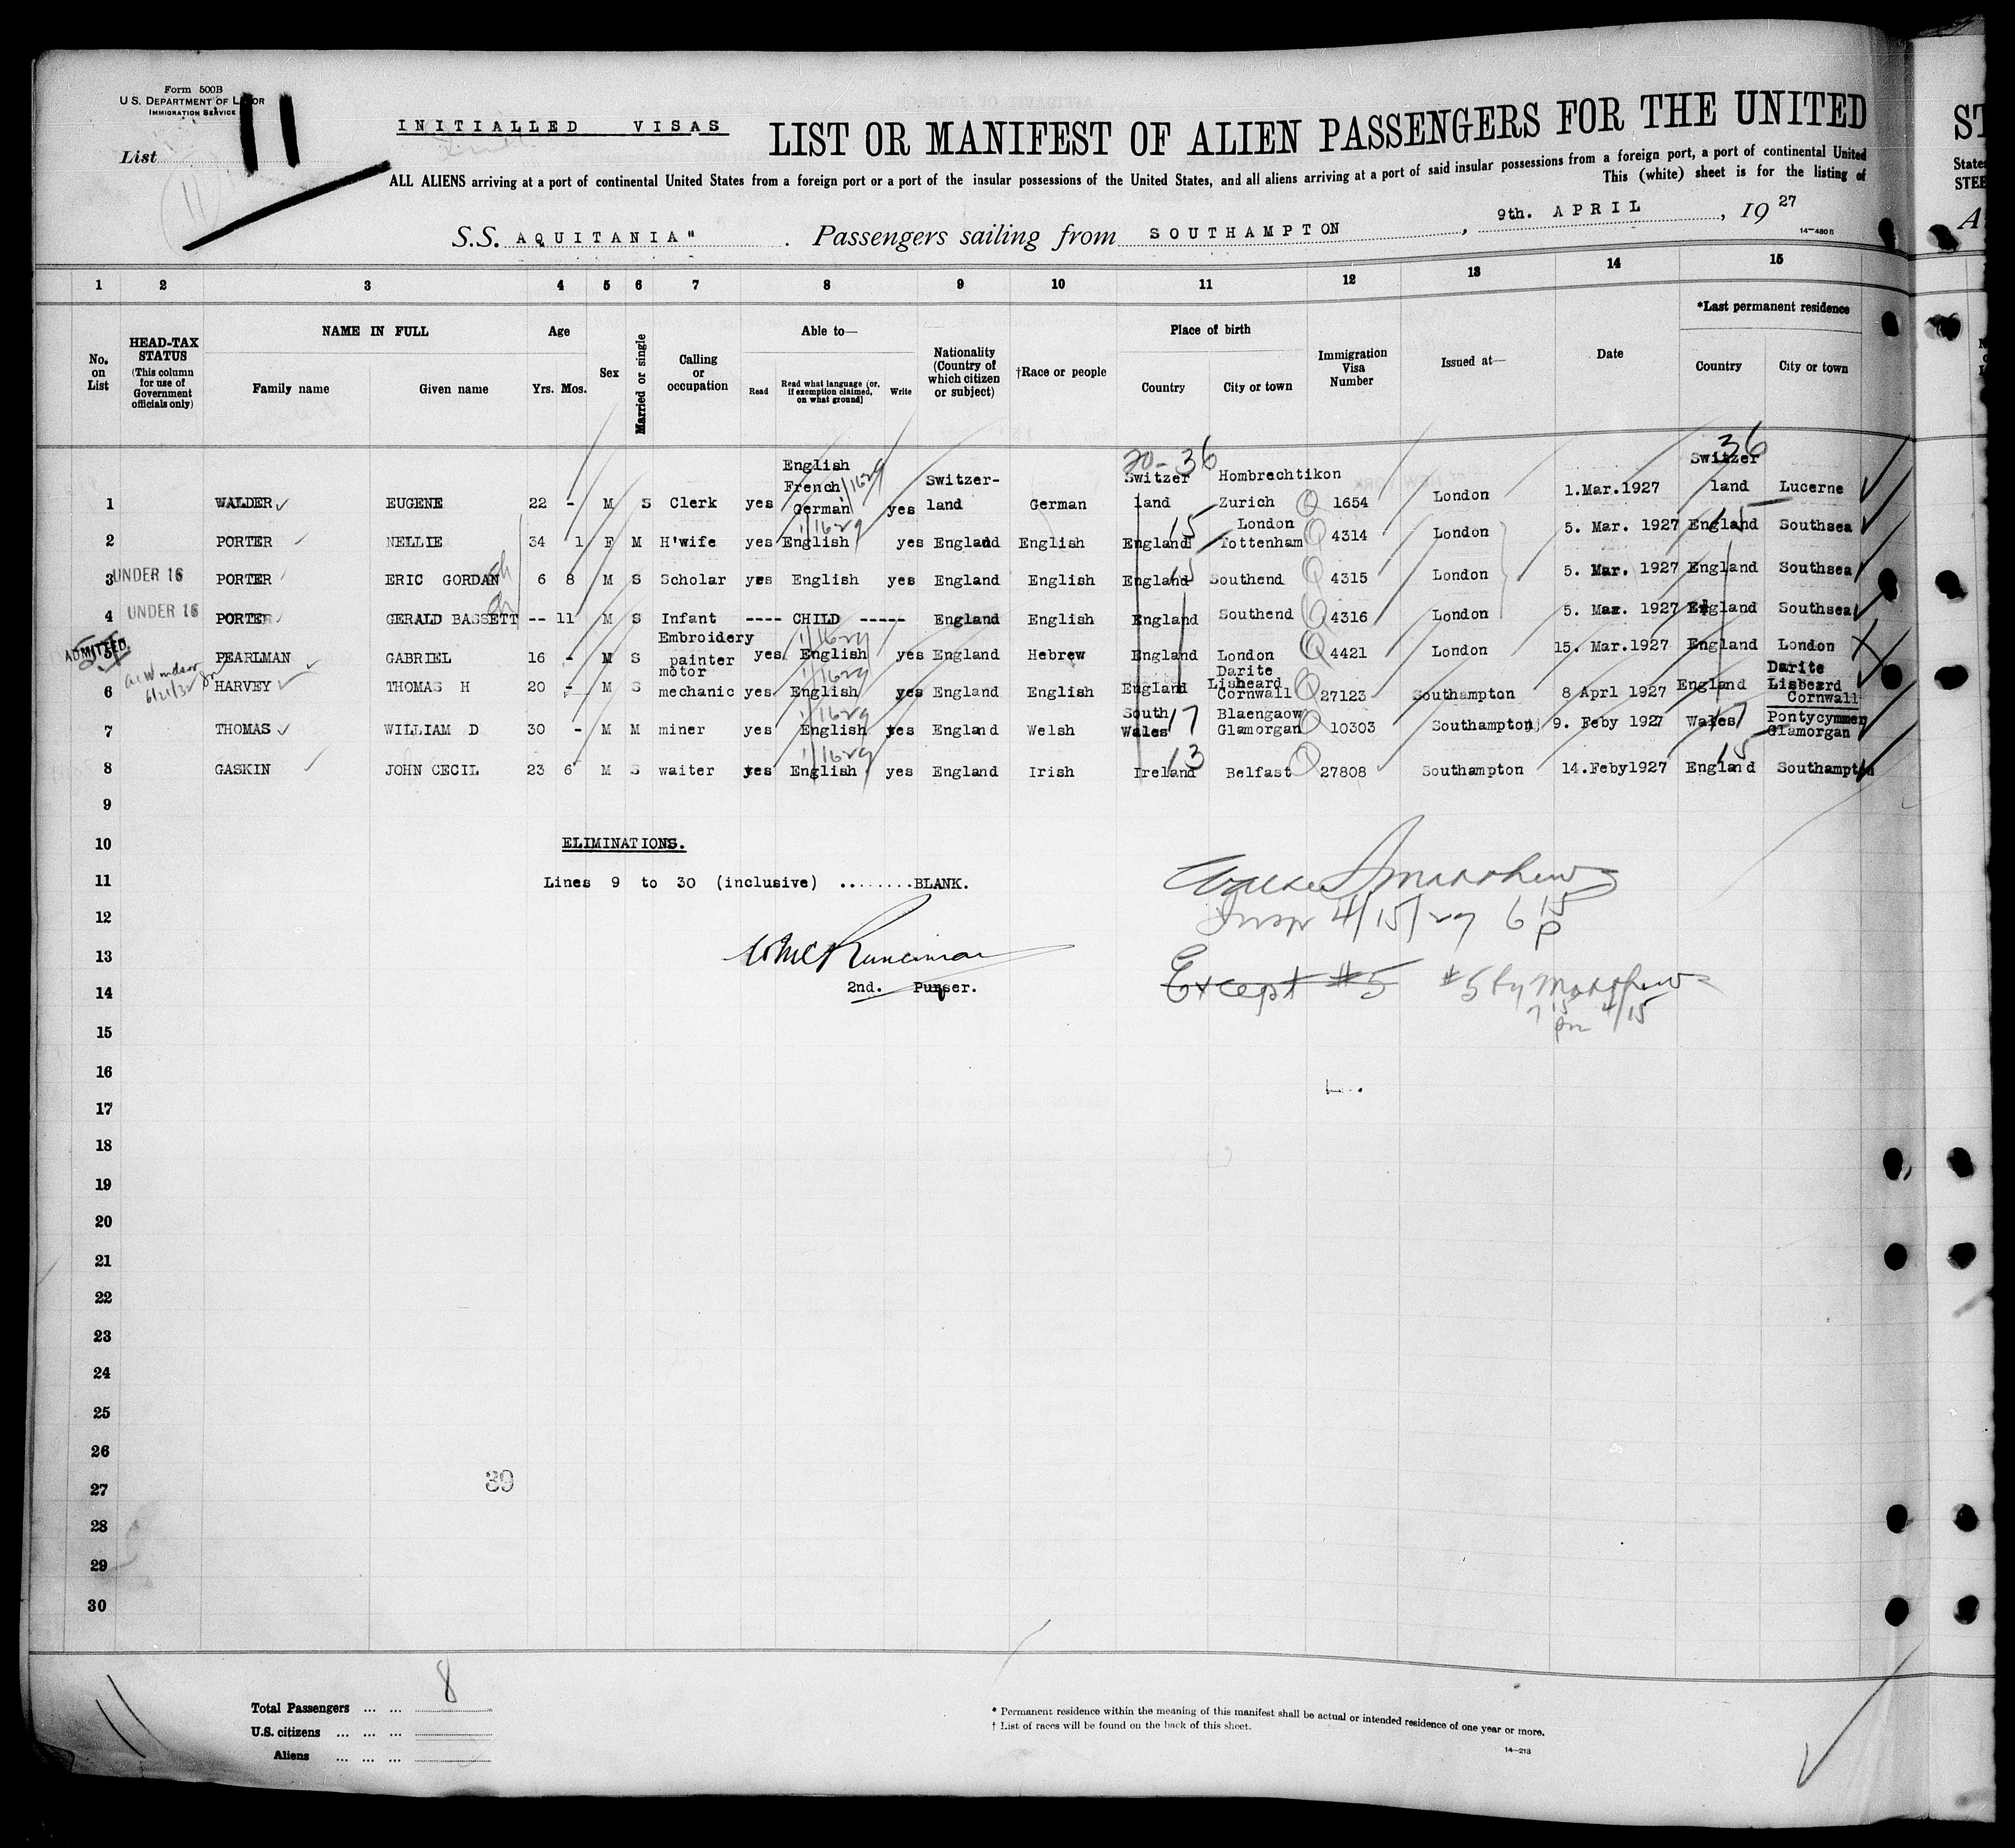 Form 500B
U. S. DEPARTMENT OF LABOR
IMMIGRATION SERVICE
List 11
INITIALLED VISAS
LIST OR MANIFEST OF ALIEN PASSENGERS FOR THE UNITED
ST
ALL ALIENS arriving at a port of continental United States from a foreign port or a port of the insular possessions of the United States, and all aliens arriving at a port of said insular possessions from a foreign port, a port of continental United
States
This (white) sheet is for the listing of
STEE
11
S.S. AQUITANIA" . Passengers sailing from SOUTHAMPTON, 9th. APRIL, 19 27
14-480B
1 2 3 4 5 6 7 8 9 10 11 12 13 14 15
No. on List
HEAD-TAX STATUS (This column for use of Government officials only)
NAME IN FULL
Family name Given name
Age
Yrs. Mos.
Sex
Married or single
Calling or occupation
Able to—
Read Read what language (or, if exemption claimed, on what ground) Write
Nationality (Country of which citizen or subject)
†Race or people
Place of birth
Country City or town
Immigration Visa Number
Issued at—
Date
*Last permanent residence
Country City or town
20-36 36
1 WALDER EUGENE 22 - M S Clerk yes English French German yes Switzer-land German Switzer land Hombrechtikon Zurich 1654 London 1.Mar.1927 Switzer land Lucerne
2 PORTER NELLIE 34 1 F M H'wife yes English yes England English England London Tottenham 4314 London 5. Mar. 1927 England Southsea
3 UNDER 16 PORTER ERIC GORDAN 6 8 M S Scholar yes English yes England English England Southend 4315 London 5. Mar. 1927 England Southsea
4 UNDER 16 PORTER GERALD BASSETT -- 11 M S Infant ---- CHILD ----- England English England Southend 4316 London 5. Mar. 1927 England Southsea
ADMITTED.
5 PEARLMAN GABRIEL 16 - M S Embroidery painter yes English yes England Hebrew England London 4421 London 15. Mar.1927 England London
6 HARVEY THOMAS H 20 - M S motor mechanic yes English yes England English England Darite Lisbeard Cornwall 27123 Southampton 8 Aprl 1927 England Darite Lisbeard Cornwall
7 THOMAS WILLIAM D 30 - M M miner yes English yes England Welsh South Wales 17 Blaengaow Glamorgan 10303 Southampton 9. Feby 1927 Wales 17 Pontycymmer Glamorgan
8 GASKIN JOHN CECIL 23 6 M S waiter yes English yes England Irish Ireland 13 Belfast 27808 Southampton 14.Feby1927 England 15 Southampton
9
10 ELIMINATIONS.
11 Lines 9 to 30 (inclusive) ........BLANK.
12 Insp 4/15/27 6 15 p
13
Except #5 #5 by
14 2nd. Purser.
7 15 pm 4/15
15
16
17
18
19
20
21
22
23
24
25
26
27
39
28
29
30
Total Passengers ... ... 8
U.S. citizens ... ... ...
Aliens ... ... ...
* Permanent residence within the meaning of this manifest shall be actual or intended residence of one year or more.
† List of races will be found on the back of this sheet.
14-213